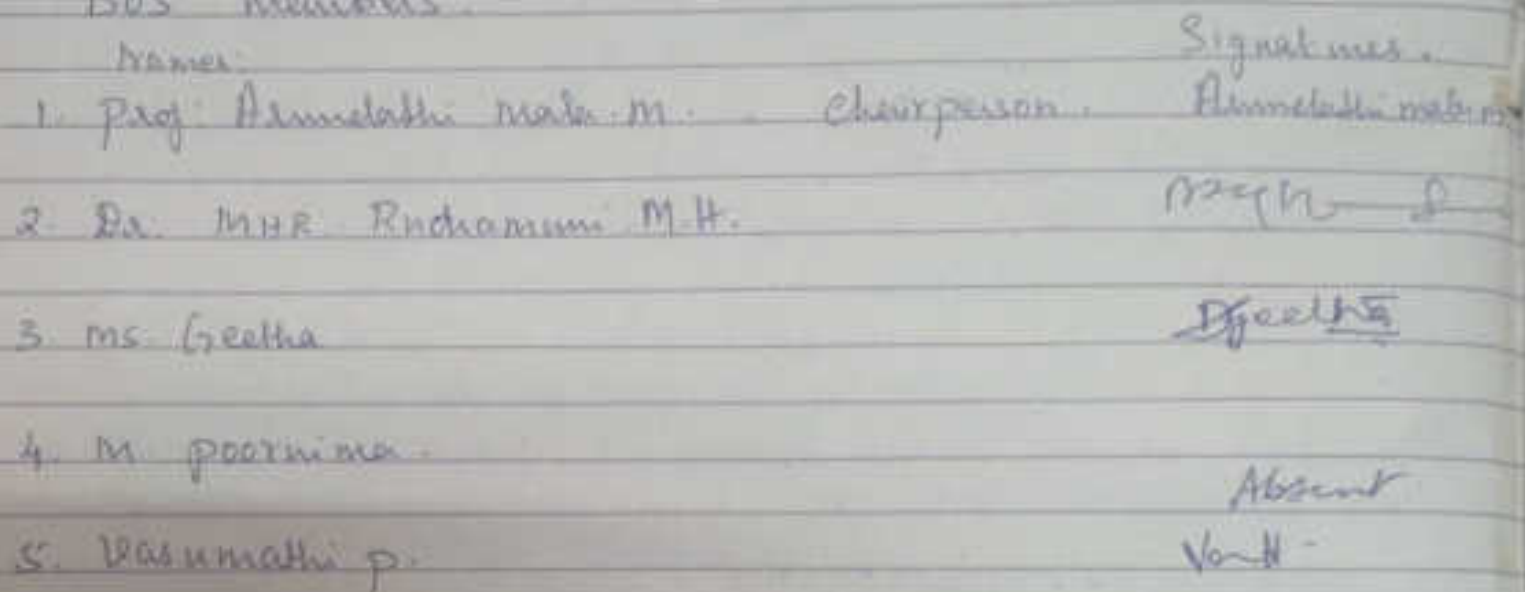 BOS Members.
Names: Signatures.
1. Prof: mala. M. Chairperson.
2. Dr. MHR Rudramuni M.H.
3. Ms. Geetha Dgeetha
4. M poornima. Absent
5. Vasumathi p.